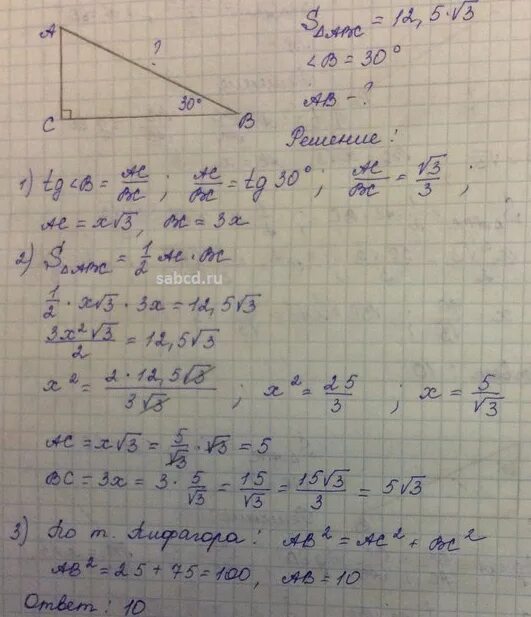 S△ABC = 12,5·√3
∠B = 30°
AB - ?
A
?
30°
C
B
Решение:
1) tg∠B = AC/BC ; AC/BC = tg 30° ; AC/BC = √3/3 ;
AC = x√3, BC = 3x
2) S△ABC = 1/2 AC · BC
sabcd.ru
1/2 · x√3 · 3x = 12,5√3
3x²√3/2 = 12,5√3
x² = 2·12,5√3/3√3 ; x² = 25/3 ; x = 5/√3
AC = x√3 = 5/√3 · √3 = 5
BC = 3x = 3 · 5/√3 = 15/√3 = 15√3/3 = 5√3
3) По т. Пифагора: AB² = AC² + BC²
AB² = 25 + 75 = 100, AB = 10
Ответ: 10